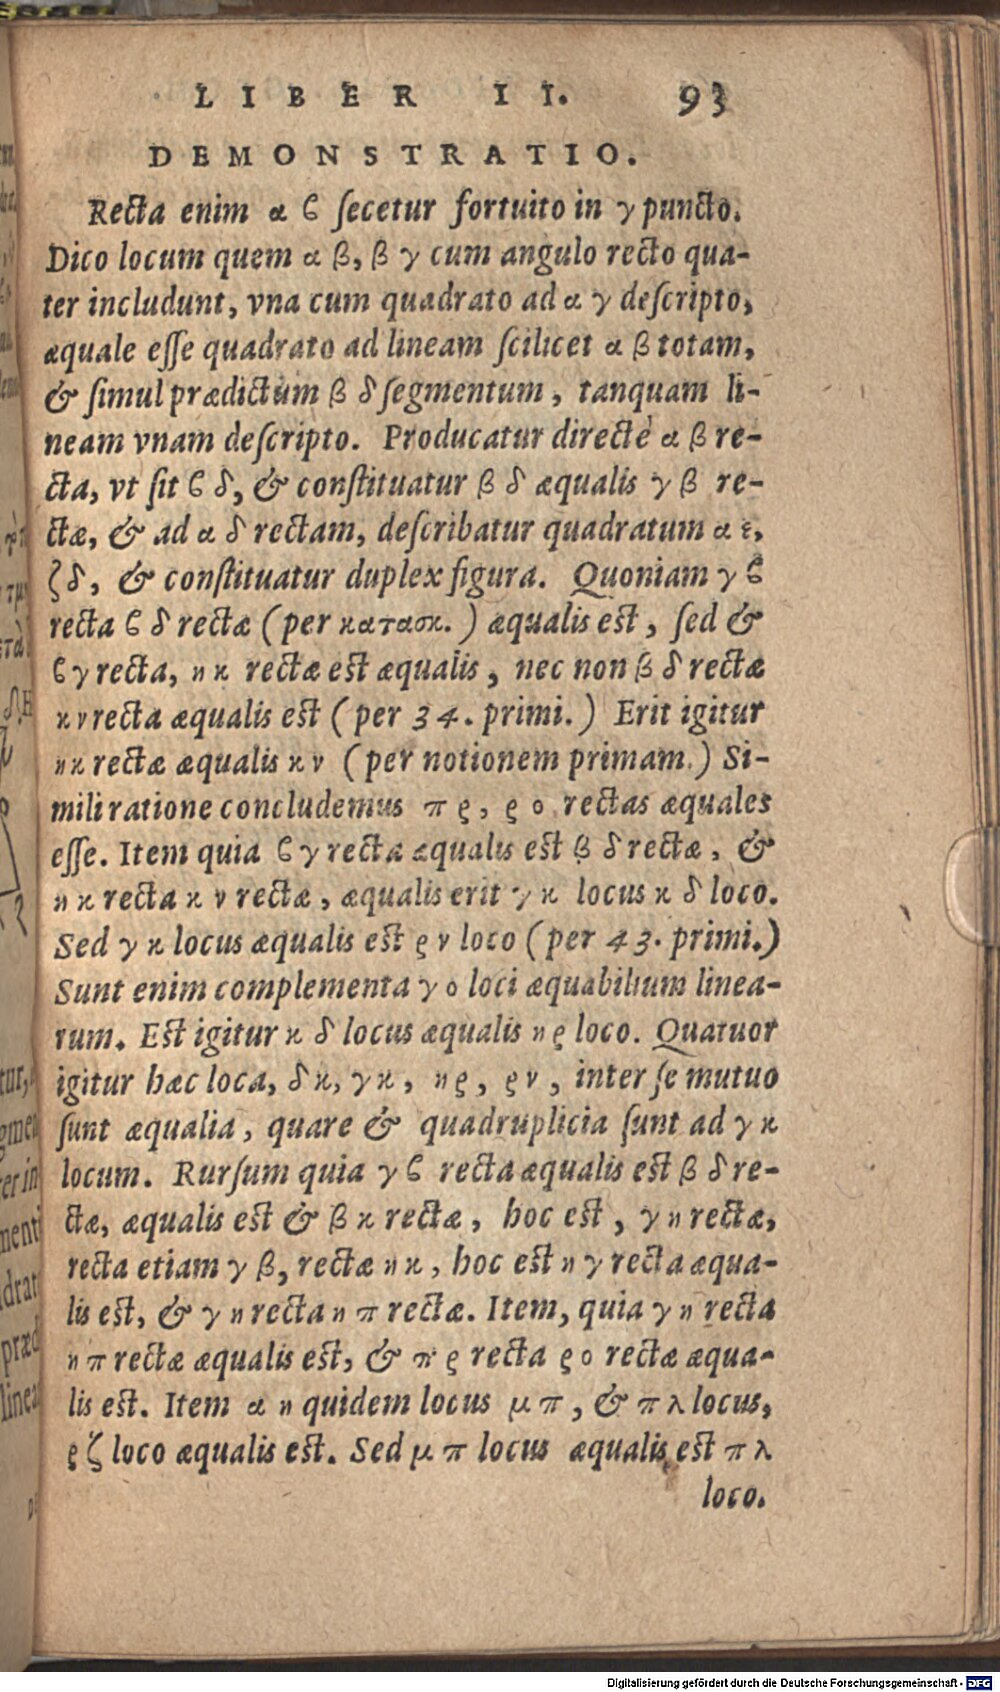 LIBER II. 93
DEMONSTRATIO.
Recta enim α ϐ ſecetur fortuito in γ puncto.
Dico locum quem α β, β γ cum angulo recto qua-
ter includunt, vna cum quadrato ad α γ deſcripto,
æquale eſſe quadrato ad lineam ſcilicet α β totam,
& ſimul prædictum β δ ſegmentum, tanquam li-
neam vnam deſcripto. Producatur directè α β re-
cta, vt ſit ϐ δ, & conſtituatur β δ æqualis γ β re-
ctæ, & ad α δ rectam, deſcribatur quadratum α ε,
ζ δ, & conſtituatur duplex figura. Quoniam γ ϐ
recta ϐ δ rectæ (per κατασκ.) æqualis est, ſed &
ϐ γ recta, η κ rectæ est æqualis, nec non β δ rectæ
κ ν recta æqualis est (per 34. primi.) Erit igitur
η κ rectæ æqualis κ ν (per notionem primam.) Si-
mili ratione concludemus π ϱ, ϱ ο rectas æquales
eſſe. Item quia ϐ γ recta æqualis est β δ rectæ, &
η κ recta κ ν rectæ, æqualis erit γ κ locus κ δ loco.
Sed γ κ locus æqualis est ϱ ν loco (per 43. primi.)
Sunt enim complementa γ ο loci æquabilium linea-
rum. Est igitur κ δ locus æqualis η ϱ loco. Quatuor
igitur hæc loca, δ κ, γ κ, η ϱ, ϱ ν, inter ſe mutuo
ſunt æqualia, quare & quadruplicia ſunt ad γ κ
locum. Rurſum quia γ ϐ recta æqualis est β δ re-
ctæ, æqualis est & β κ rectæ, hoc est, γ η rectæ,
recta etiam γ β, rectæ η κ, hoc est η γ recta æqua-
lis est, & γ η recta η π rectæ. Item, quia γ η recta
η π rectæ æqualis est, & π ϱ recta ϱ ο rectæ æqua-
lis est. Item α η quidem locus μ π, & π λ locus,
ϱ ζ loco æqualis est. Sed μ π locus æqualis est π λ
loco.
Digitalisierung gefördert durch die Deutsche Forschungsgemeinschaft - DFG